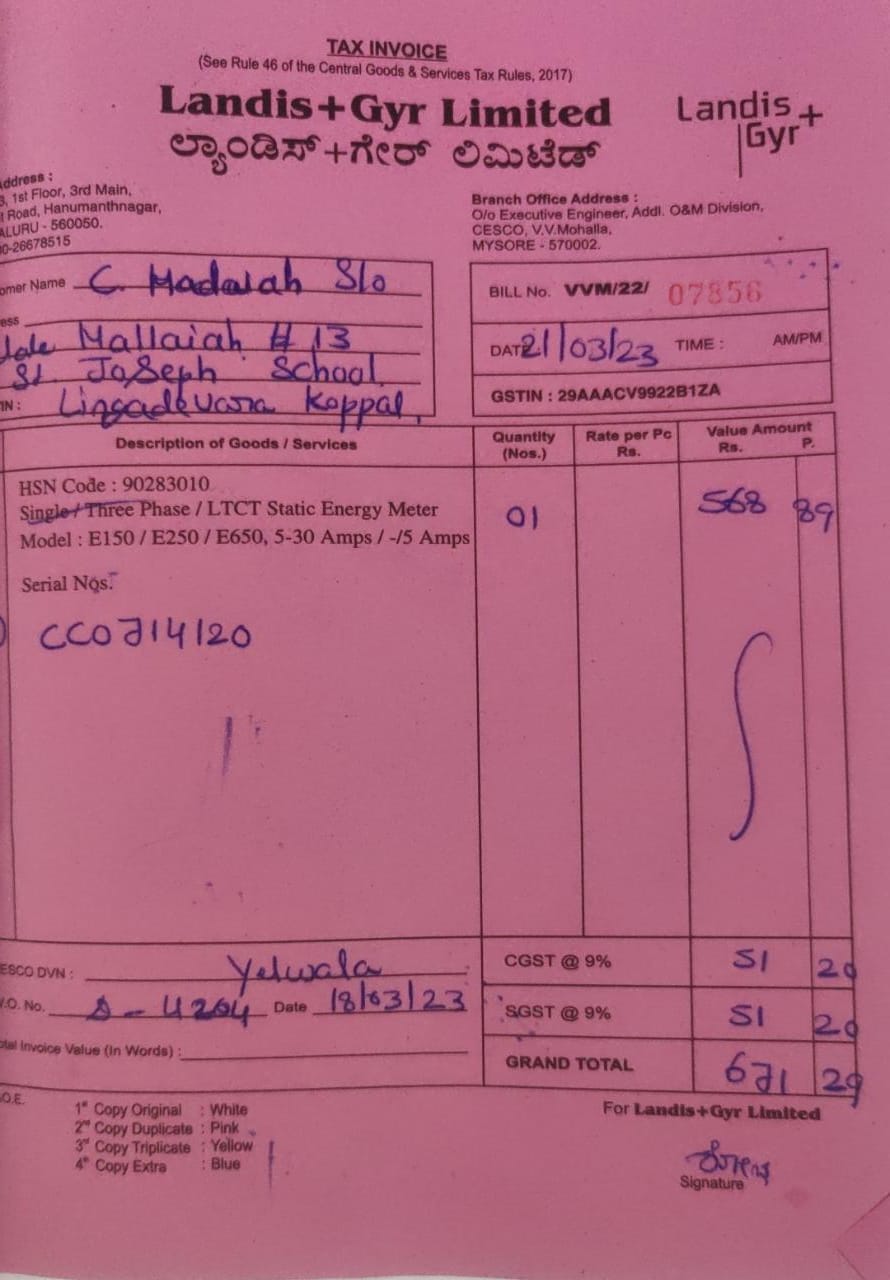 TAX INVOICE
(See Rule 46 of the Central Goods & Services Tax Rules, 2017)
Landis+Gyr Limited
Landis+
Gyr
ಲ್ಯಾಂಡಿಸ್+ಗೇರ್ ಲಿಮಿಟೆಡ್
Address :
1st Floor, 3rd Main,
Road, Hanumanthnagar,
ALURU - 560050.
0-26678515
Branch Office Address :
O/o Executive Engineer, Addl. O&M Division,
CESCO, V.V.Mohalla,
MYSORE - 570002.
omer Name C. Madaiah S/o
ess
late Mallaiah # 13
St. Joseph School
IN : Lingadevara Koppal,
BILL No. VVM/22/ 07856
DATE 21/03/23 TIME : AM/PM
GSTIN : 29AAACV9922B1ZA
Description of Goods / Services Quantity (Nos.) Rate per Pc Rs. Value Amount Rs. P.
HSN Code : 90283010
Single / Three Phase / LTCT Static Energy Meter 01 568 89
Model : E150 / E250 / E650, 5-30 Amps / -/5 Amps
Serial Nos.
CC0714120
ESCO DVN : Yelwala
CGST @ 9% 51 20
.O. No. 4204 Date 18/03/23
SGST @ 9% 51 20
otal Invoice Value (In Words) :
GRAND TOTAL 671 29
.O.E.
1st Copy Original : White
2nd Copy Duplicate : Pink
3rd Copy Triplicate : Yellow
4th Copy Extra : Blue
For Landis+Gyr Limited
Signature